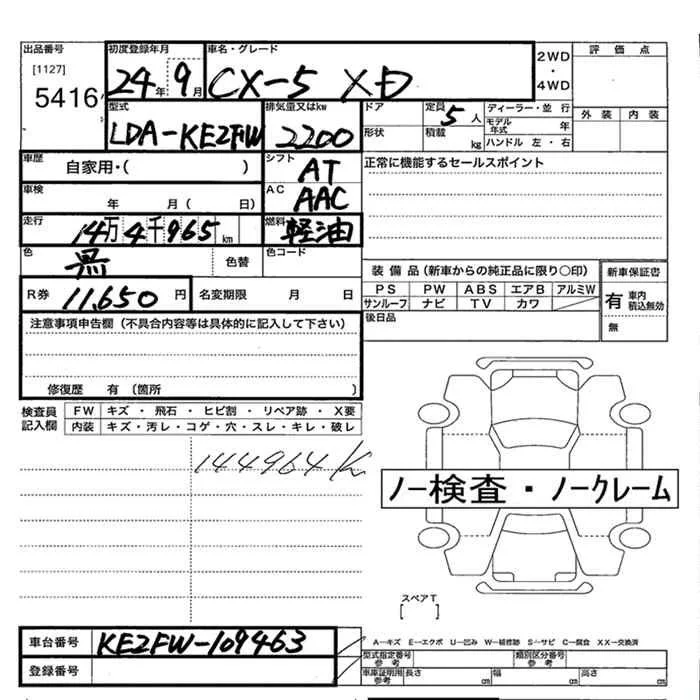 出品番号 初度登録年月 車名・グレード 評価点
[1127] 5416 24年 9月 CX-5 XD 2WD・4WD
型式 排気量又はkw ドア 定員 5人 ディーラー・並行 外装 内装
LDA-KE2FW 2200 形状 積載 kg モデル年式 年
ハンドル 左・右
車歴 自家用・( ) シフト AT 正常に機能するセールスポイント
車検 年 月( 日) AC AAC
走行 14万4千965km 燃料 軽油
色 黒 色替 色コード
装備品(新車からの純正品に限り○印) 新車保証書
R券 11,650円 名変期限 月 日 PS PW ABS エアB アルミW 有 車内積込無効
サンルーフ ナビ TV カワ
後日品 無
注意事項申告欄(不具合内容等は具体的に記入して下さい)
修復歴 有(箇所 )
検査員記入欄 FW キズ・飛石・ヒビ割・リペア跡・X要
内装 キズ・汚レ・コゲ・穴・スレ・キレ・破レ
144964K
ノー検査・ノークレーム
スペアT
[ ]
車台番号 KE2FW-109463 A—キズ E—エクボ U—凹み W—補修跡 S—サビ C—腐食 XX—交換済
型式指定番号 参考 類別区分番号 参考
登録番号 車庫証明用 参考 長さ cm 幅 cm 高さ cm